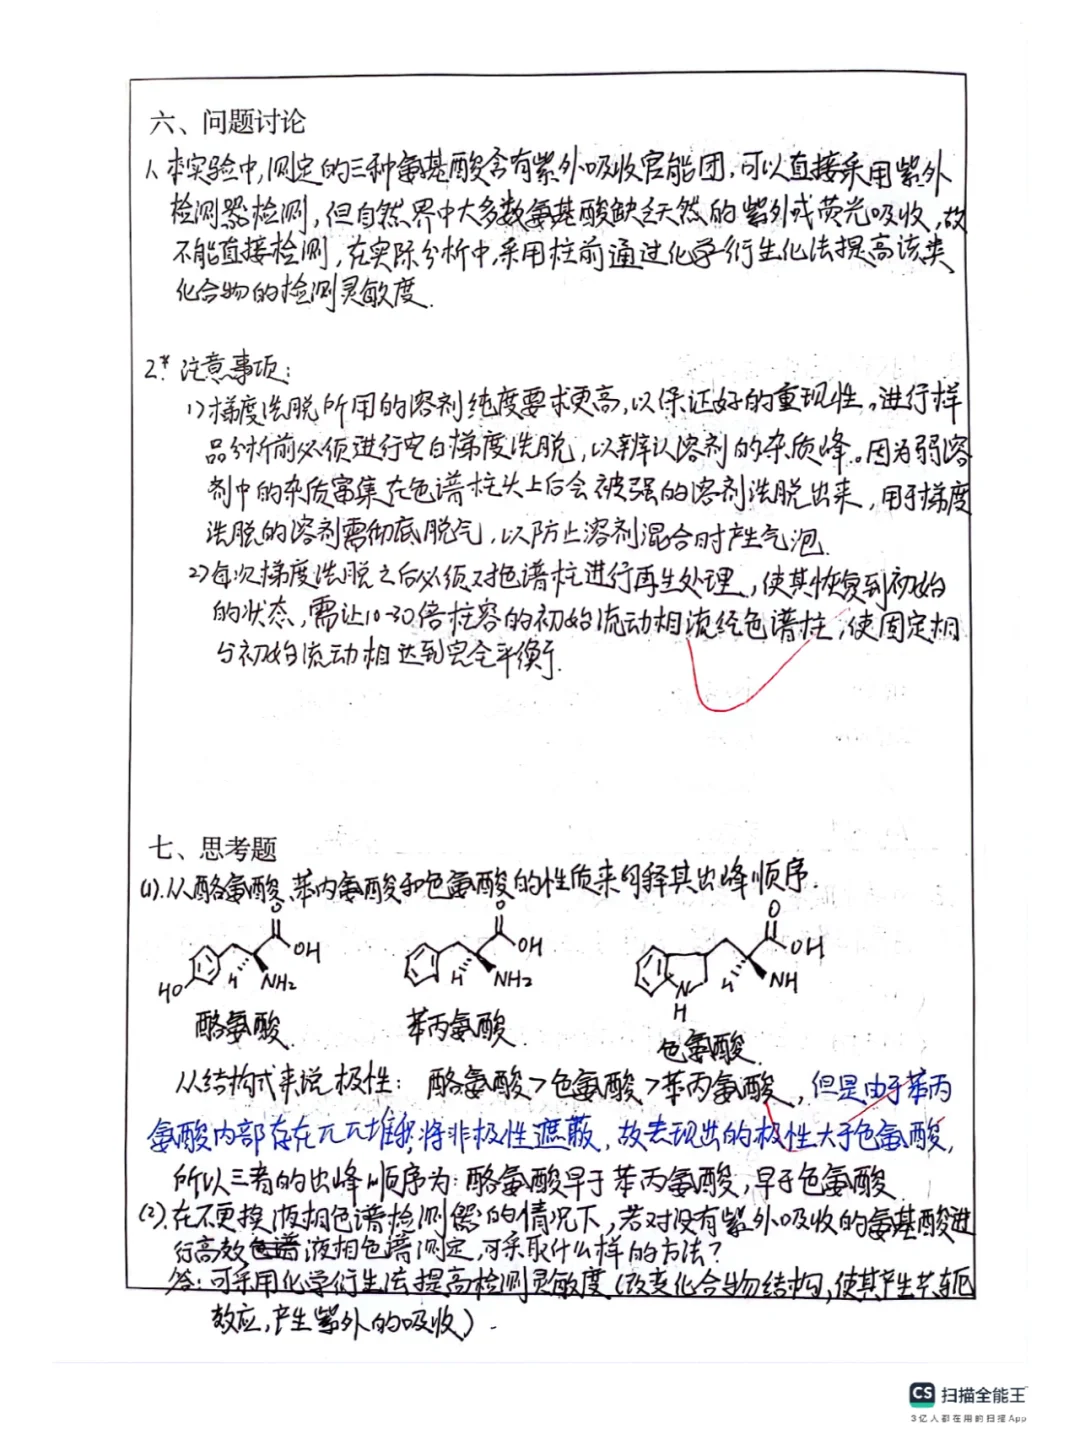 六、问题讨论
1、本实验中,测定的三种氨基酸含有紫外吸收官能团,可以直接采用紫外
检测器检测,但自然界中大多数氨基酸缺乏天然的紫外或荧光吸收,故
不能直接检测,在实际分析中,采用柱前通过化学衍生化法提高该类
化合物的检测灵敏度.
2.* 注意事项:
1)梯度洗脱所用的溶剂纯度要求更高,以保证好的重现性。进行样
品分析前必须进行空白梯度洗脱,以辨认溶剂的杂质峰。因为弱溶
剂中的杂质富集在色谱柱头上后会被强的溶剂洗脱出来,用于梯度
洗脱的溶剂需彻底脱气,以防止溶剂混合时产生气泡.
2)每次梯度洗脱之后必须对色谱柱进行再生处理,使其恢复到初始
的状态,需让10-30倍柱容的初始流动相流经色谱柱,使固定相
与初始流动相达到完全平衡.
七、思考题
(1).从酪氨酸、苯丙氨酸和色氨酸的性质来解释其出峰顺序.
O O O
OH OH OH
HO H NH2 H NH2 N H H NH
酪氨酸 苯丙氨酸 色氨酸
从结构式来说极性: 酪氨酸>色氨酸>苯丙氨酸,但是由于苯丙
氨酸内部存在π-π堆积,将非极性遮蔽,故表现出的极性大于色氨酸,
所以三者的出峰顺序为:酪氨酸早于苯丙氨酸,早于色氨酸
(2).在不更换液相色谱检测器的情况下,若对没有紫外吸收的氨基酸进
行高效液相色谱测定,可采取什么样的方法?
答:可采用化学衍生法提高检测灵敏度(改变化合物结构,使其产生共轭
效应,产生紫外的吸收).
CS 扫描全能王
3亿人都在用的扫描App